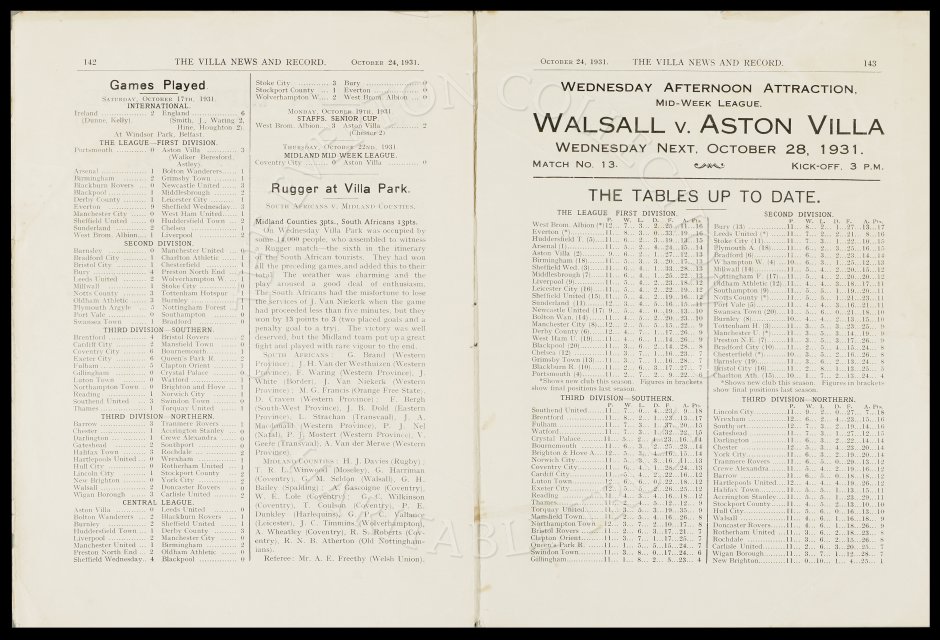 142 THE VILLA NEWS AND RECORD. OCTOBER 24, 1931.
Games Played
SATURDAY, OCTOBER 17TH, 1931
INTERNATIONAL.
Ireland 2 England 6
(Dunne, Kelly). (Smith, J., Waring 2,
Hine, Houghton 2).
At Windsor Park, Belfast.
THE LEAGUE—FIRST DIVISION.
Portsmouth 0 Aston Villa 3
(Walker Beresford,
Astley).
Arsenal 1 Bolton Wanderers 1
Birmingham 2 Grimsby Town
Blackburn Rovers Newcastle United 3
Blackpool 1 Middlesbrough 2
Derby County 1 Leicester City 1
Everton 9 Sheffield Wednesday 3
Manchester City 0 West Ham United 1
Sheffield United 0 Huddersfield Town 2
Sunderland 2 Chelsea
West Brom. Albion 1 Liverpool 2
SECOND DIVISION.
Barnsley Manchester United
Bradford City Charlton Athletic 1
Bristol City 1 Chesterfield
Bury 4 Preston North End
Leeds United 2 Wolverhampton W.
Millwall 1 Stoke City 0
Notts County 3 Tottenham Hotspur
Oldham Athletic 3 Burnley
Plymouth Argyle Nottingham Forest
Port Vale Southampton
Swansea Town Bradford
THIRD DIVISION—SOUTHERN.
Brentford 4 Bristol Rovers 2
Cardiff City Mansfield Town 0
Coventry City 6 Bournemouth 1
Exeter City Queen's Park R. 2
Fulham 5 Clapton Orient 1
Gillingham 0 Crystal Palace 0
Luton Town 0 Watford 1
Northampton Town 0 Brighton and Hove 1
Reading 1 Norwich City
Southend United 3 Swindon Town
Thames 1 Torquay United 1
THIRD DIVISION—NORTHERN.
Barrow 3 Tranmere Rovers 1
Chester Accrington Stanley 0
Darlington 1 Crewe Alexandra 0
Gateshead 2 Southport
Halifax Town 3 Rochdale 2
Hartlepools United Wrexham 1
Hull City 0 Rotherham United 1
Lincoln City 1 Stockport County 2
New Brighton 0 York City
Walsall 2 Doncaster Rovers 0
Wigan Borough 3 Carlisle United 2
CENTRAL LEAGUE.
Aston Villa Leeds United 0
Bolton Wanderers 2 Blackburn Rovers 1
Burnley 2 Sheffield United
Huddersfield Town 1 Derby County 3
Liverpool 2 Manchester City 0
Manchester United 1 Birmingham 2
Preston North End 2 Oldham Athletic 0
Sheffield Wednesday 4 Blackpool 0
Stoke City 3 Bury 0
Stockport County 1 Everton 0
Wolverhampton W. 2 West Brom. Albion 0
MONDAY, OCTOBER 19TH, 1931.
STAFFS. SENIOR CUP.
West Brom. Albion 3 Aston Villa 2
(Chester 2)
THURSDAY, OCTOBER 22ND, 1931.
MIDLAND MID WEEK LEAGUE.
Coventry City 0 Aston Villa 0
Rugger at Villa Park.
SOUTH AFRICANS V. MIDLAND COUNTIES.
Midland Counties 3pts., South Africans 13pts.
On Wednesday Villa Park was occupied by
some 14,000 people, who assembled to witness
a Rugger match—the sixth in the itinerary
of the South African tourists. They had won
all the preceding games, and added this to their
total. The weather was charming and the
play aroused a good deal of enthusiasm.
The South Africans had the misfortune to lose
the services of J. Van Niekerk when the game
had proceeded less than five minutes, but they
won by 13 points to 3 (two placed goals and a
penalty goal to a try). The victory was well
deserved, but the Midland team put up a great
fight and played with rare vigour to the end.
SOUTH AFRICANS: G. Brand (Western
Province), J. H. Van der Westhuizen (Western
Province), F. Waring (Western Province), J.
White (Border), J. Van Niekerk (Western
Province), M. G. Francis (Orange Free State),
D. Craven (Western Province), F. Bergh
(South-West Province), J. B. Dold (Eastern
Province), L. Strachan (Transvaal), J. A.
Macdonald (Western Province), P. J. Nel
(Natal), P. J. Mostert (Western Province), V.
Geere (Transvaal), A. Van der Merwe (Western
Province).
MIDLAND COUNTIES: H. J. Davies (Rugby);
T. R. L. Winwood (Moseley), G. Harriman
(Coventry), G. M. Seldon (Walsall), G. H.
Bailey (Spalding); A. Gascoigne (Coventry),
W. E. Lole (Coventry); G. C. Wilkinson
(Coventry), T. Coulson (Coventry), P. E.
Dunkley (Harlequins), G. P. C. Vallance
(Leicester), J. C. Timmins (Wolverhampton),
A. Wheatley (Coventry), R. S. Roberts (Cov-
entry), R. S. B. Atherton (Old Nottingham-
ians).
Referee: Mr. A. E. Freethy (Welsh Union).
OCTOBER 24, 1931. THE VILLA NEWS AND RECORD. 143
WEDNESDAY AFTERNOON ATTRACTION.
MID-WEEK LEAGUE.
WALSALL V. ASTON VILLA
WEDNESDAY NEXT, OCTOBER 28, 1931.
MATCH No. 13. KICK-OFF, 3 P.M.
THE TABLES UP TO DATE.
THE LEAGUE FIRST DIVISION.
P. W. L. D. F. A. Pts.
West Brom. Albion (*) 12 7 3 2 25 11 16
Everton (*) 11 8 3 0 33 19 16
Huddersfield T. (5) 11 6 2 3 19 13 15
Arsenal (1) 11 5 2 4 24 15 14
Aston Villa (2) 9 6 2 1 27 12 13
Birmingham (18) 11 5 3 3 20 17 13
Sheffield Wed. (3) 11 6 4 1 33 28 13
Middlesbrough (7) 11 6 4 1 25 22 13
Liverpool (9) 11 5 4 2 23 18 12
Leicester City (16) 11 5 4 2 22 19 12
Sheffield United (15) 11 5 4 2 19 16 12
Sunderland (11) 12 3 4 5 16 15 11
Newcastle United (17) 9 5 4 0 19 13 10
Bolton Wan. (14) 11 4 5 2 20 23 10
Manchester City (8) 12 2 5 5 15 22 9
Derby County (6) 12 4 7 1 17 26 9
West Ham U. (19) 11 4 6 1 14 26 9
Blackpool (20) 11 3 6 2 14 28 8
Chelsea (12) 11 3 7 1 16 23 7
Grimsby Town (13) 11 3 7 1 16 28 7
Blackburn R. (10) 11 2 6 3 17 27 7
Portsmouth (4) 11 2 7 2 9 22 6
*Shows new club this season. Figures in brackets
show final positions last season.
SECOND DIVISION.
P. W. L. D. F. A. Pts.
Bury (13) 11 8 2 1 27 13 17
Leeds United (*) 11 7 2 2 21 8 16
Stoke City (11) 11 7 3 1 22 10 15
Plymouth A. (18) 11 6 2 3 25 16 15
Bradford (6) 11 6 3 2 23 14 14
W'hampton W. (4) 10 6 3 1 25 12 13
Millwall (14) 11 5 4 2 20 15 12
Nottingham F. (17) 11 5 4 2 20 20 12
Oldham Athletic (12) 11 4 4 3 18 17 11
Southampton (9) 11 5 5 1 19 20 11
Notts County (*) 11 5 5 1 21 23 11
Port Vale (5) 11 4 4 3 16 21 11
Swansea Town (20) 11 5 6 0 21 18 10
Burnley (8) 10 4 4 2 13 15 10
Tottenham H. (3) 11 3 5 3 23 25 9
Manchester U. (*) 11 3 5 3 14 19 9
Preston N.E. (7) 11 3 5 3 17 26 9
Bradford City (10) 11 2 5 4 15 24 8
Chesterfield (*) 10 3 5 2 16 26 8
Barnsley (19) 12 3 7 2 13 24 8
Bristol City (16) 11 2 8 1 13 25
Charlton Ath. (15) 10 1 7 2 13 24 4
*Shows new club this season. Figures in brackets
show final positions last season.
THIRD DIVISION—SOUTHERN.
P. W. L. D. F. A. Pts.
Southend United 11 7 0 4 23 9 18
Brentford 11 8 2 1 23 13 17
Fulham 11 7 3 1 37 20 15
Watford 11 7 3 1 32 22 15
Crystal Palace 11 5 2 4 23 16 14
Bournemouth 11 6 3 2 25 23 14
Brighton & Hove A. 12 5 3 4 16 15 14
Norwich City 11 5 3 3 16 11 13
Coventry City 11 6 4 1 28 24 13
Cardiff City 11 5 4 2 24 22 12
Luton Town 12 6 6 0 22 18 12
Exeter City 12 5 5 2 26 25 12
Reading 11 4 3 4 16 18 12
Thames 11 2 4 5 12 12 9
Torquay United 11 3 5 3 19 35 9
Mansfield Town 11 2 5 4 16 26 8
Northampton Town 12 3 7 2 10 17 8
Bristol Rovers 11 2 6 3 17 21 7
Clapton Orient 11 3 7 1 17 25 7
Queen's Park R. 11 1 5 5 15 24 7
Swindon Town 11 3 8 0 17 24 6
Gillingham 11 1 8 2 5 23 4
THIRD DIVISION—NORTHERN.
P. W. L. D. F. A. Pts.
Lincoln City 11 9 2 0 27 7 18
Wrexham 12 6 2 4 23 15 16
Southport 12 7 3 2 19 14 16
Gateshead 11 7 3 1 27 12 15
Darlington 11 6 3 2 22 14 14
Chester 12 4 4 4 23 20
York City 11 6 3 2 19 20 14
Tranmere Rovers 11 6 5 0 29 15 12
Crewe Alexandra 11 5 4 2 19 16 12
Barrow 11 6 5 0 18 18 12
Hartlepools United 12 4 4 4 19 26 12
Halifax Town 11 5 5 1 13 15 11
Accrington Stanley 11 5 5 1 23 29 11
Stockport County 11 4 5 2 13 10 10
Hull City 11 5 6 0 16 13 10
Walsall 11 4 6 1 16 18 9
Doncaster Rovers 11 4 6 1 18 26 9
Rotherham United 11 3 6 2 18 23 8
Rochdale 11 3 6 2 15 26 8
Carlisle United 11 2 6 3 20 25 7
Wigan Borough 11 3 7 1 12 28 7
New Brighton 11 0 10 1 4 25 1